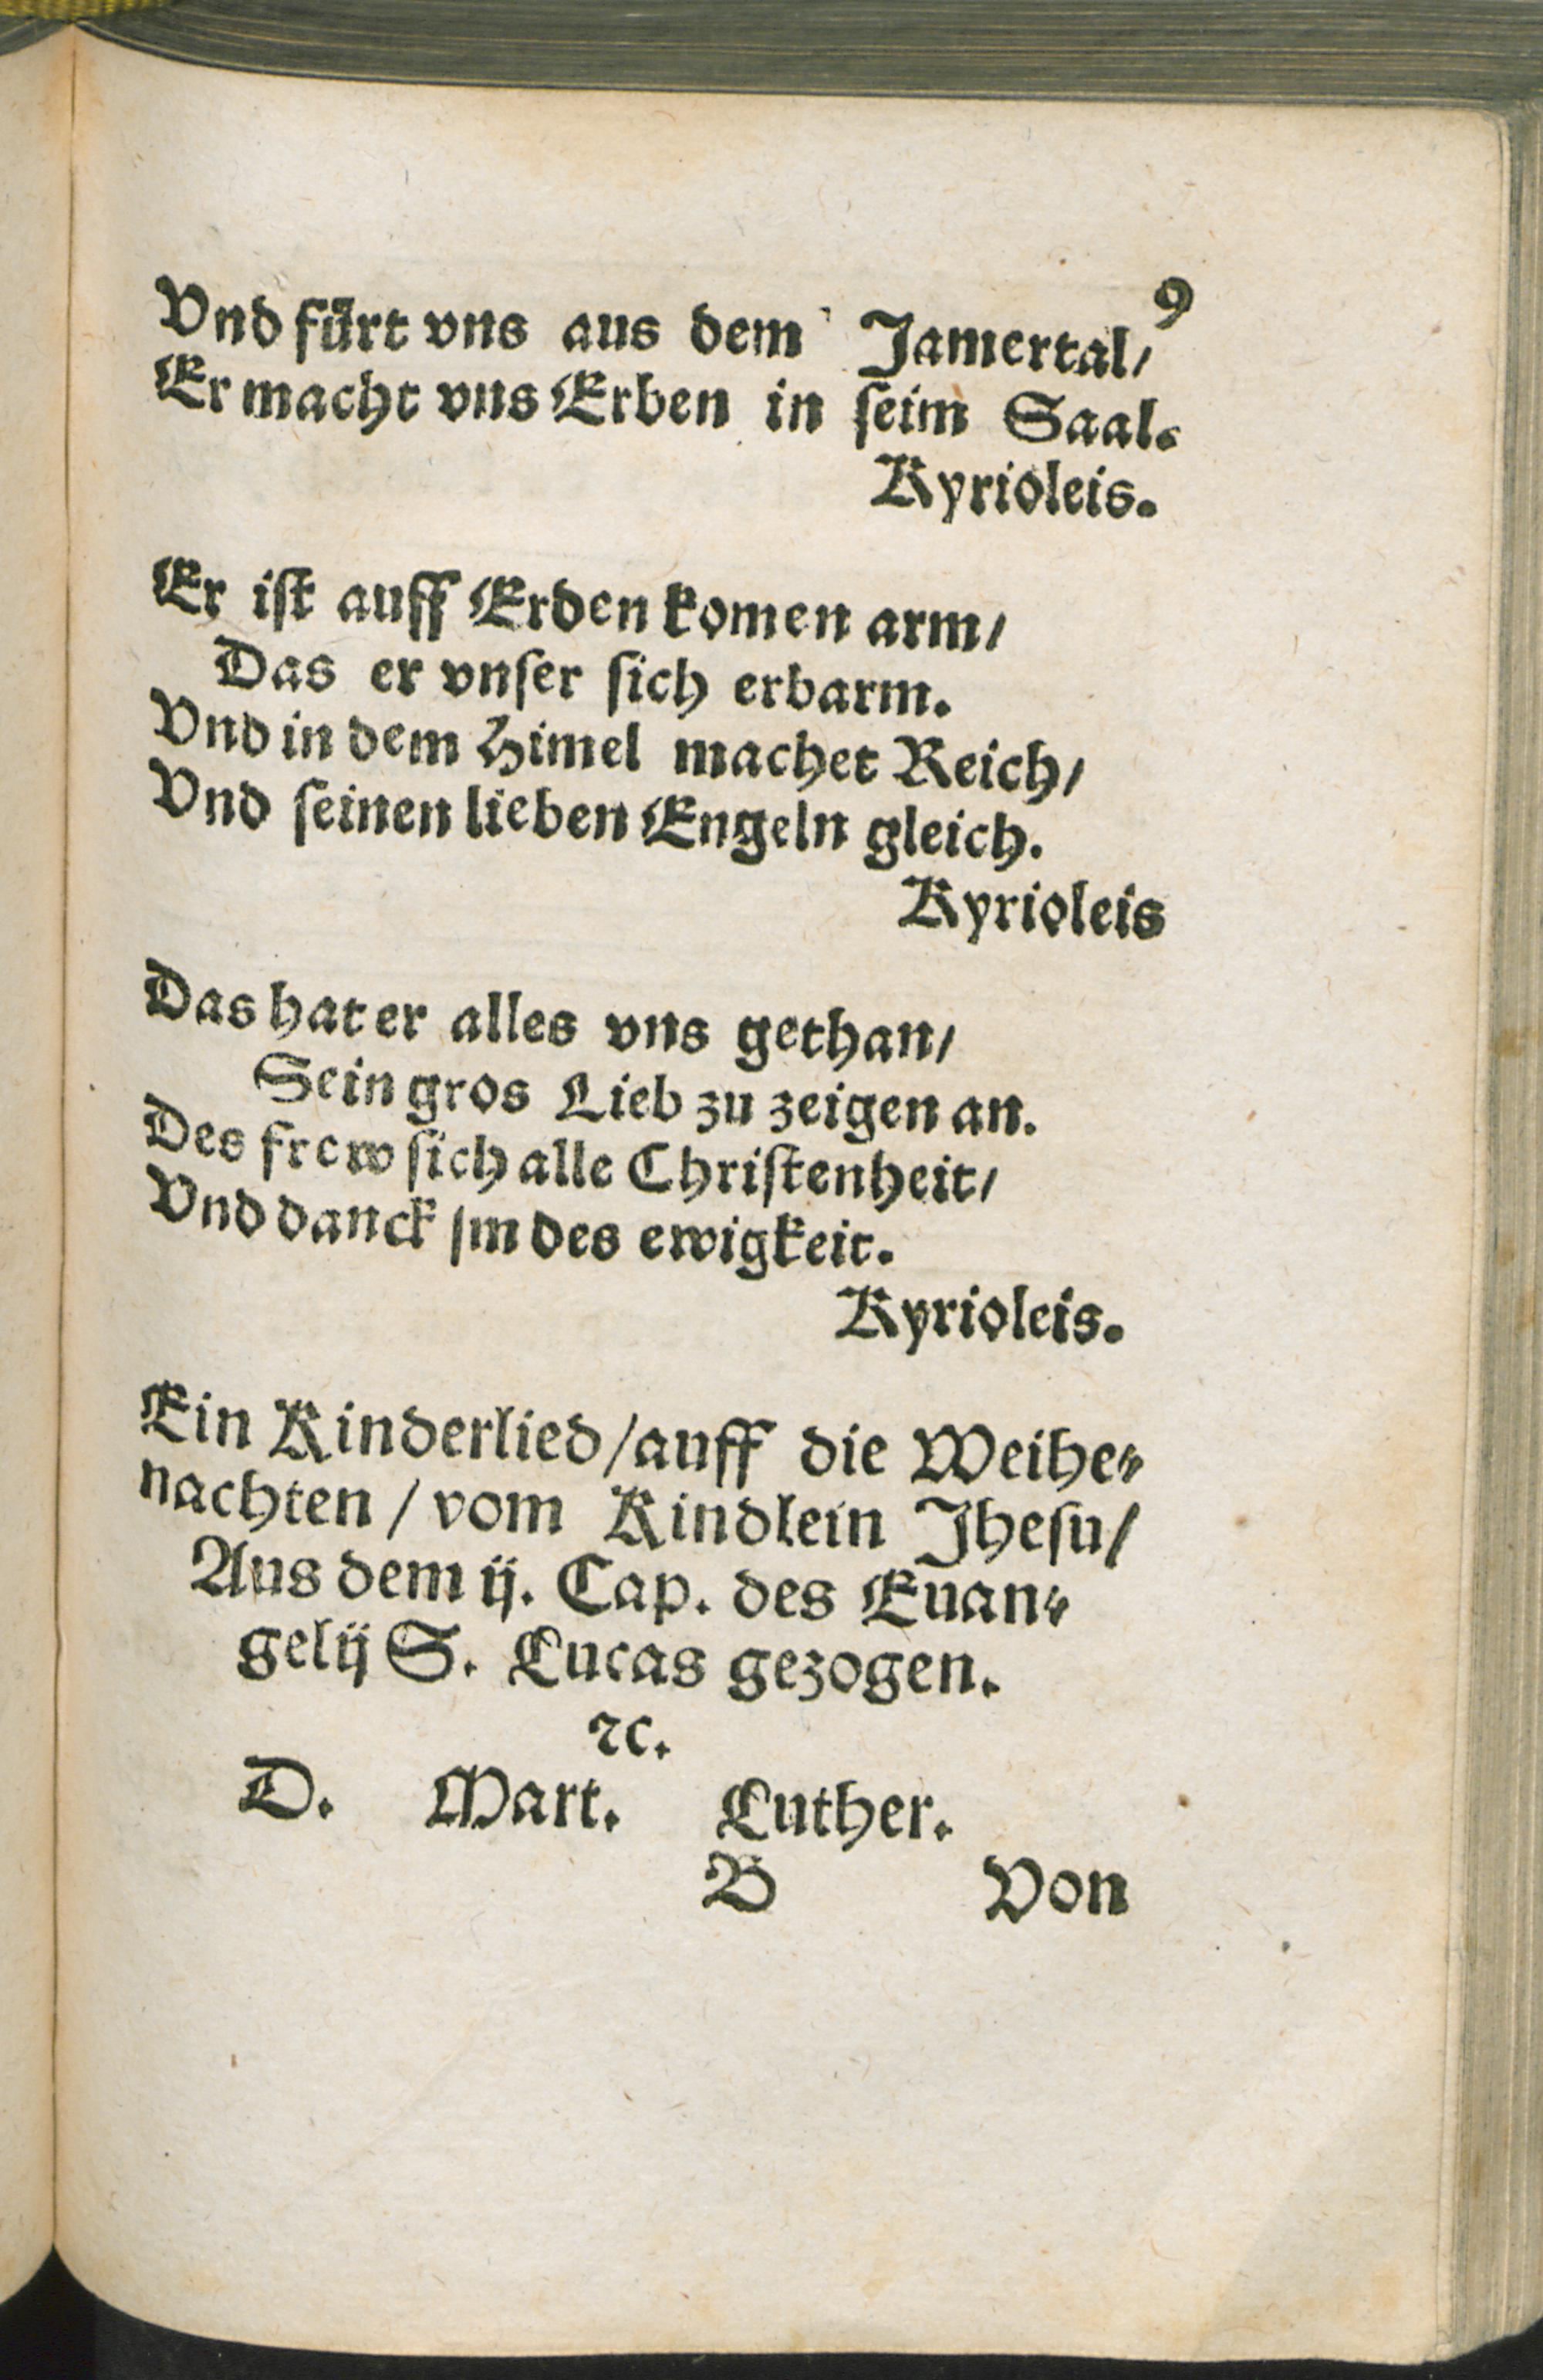 9
Vnd fürt vns aus dem Jamertal/
Er macht vns Erben in ſeim Saal.
Kyrioleis.
Er iſt auff Erden komen arm/
Das er vnſer ſich erbarm.
Vnd in dem Himel machet Reich/
Vnd ſeinen lieben Engeln gleich.
Kyrioleis
Das hat er alles vns gethan/
Sein gros Lieb zu zeigen an.
Des frew ſich alle Chriſtenheit/
Vnd danck jm des ewigkeit.
Kyrioleis.
Ein Kinderlied/auff die Weihe⸗
nachten/vom Kindlein Jheſu/
Aus dem ij. Cap. des Euan⸗
gelij S. Lucas gezogen.
ꝛc.
D. Mart. Luther.
B Von